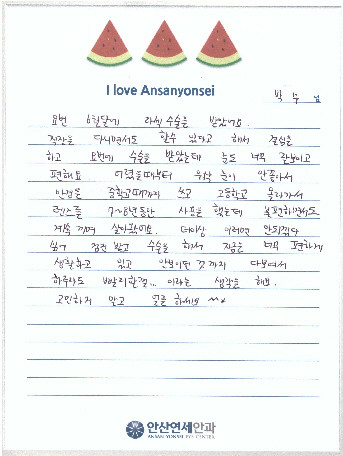 I love Ansanyonsei
박 수 님
요번 6월달에 라식 수술을 받았어요.
직장을 다니면서도 할수 있다고 해서 결심을
하고 요번에 수술을 받았는데 눈도 너무 잘보이고
편해요 어렸을때부터 워낙 눈이 안좋아서
안경을 중학교때까지 쓰고 고등학교 올라가서
렌즈를 7~8년동안 사용을 했는데 불편하면서도
계속 끼며 살아왔어요. 더이상 이러면 안되겠다
싶어 검진 받고 수술을 해서 지금은 너무 편하게
생활하고 있고 안보이던 것까지 다보여서
하루라도 빨리할걸... 이라는 생각을 해요.
고민하지 말고 얼른 하세요 ^^
안산연세안과
ANSAN YONSEI EYE CENTER